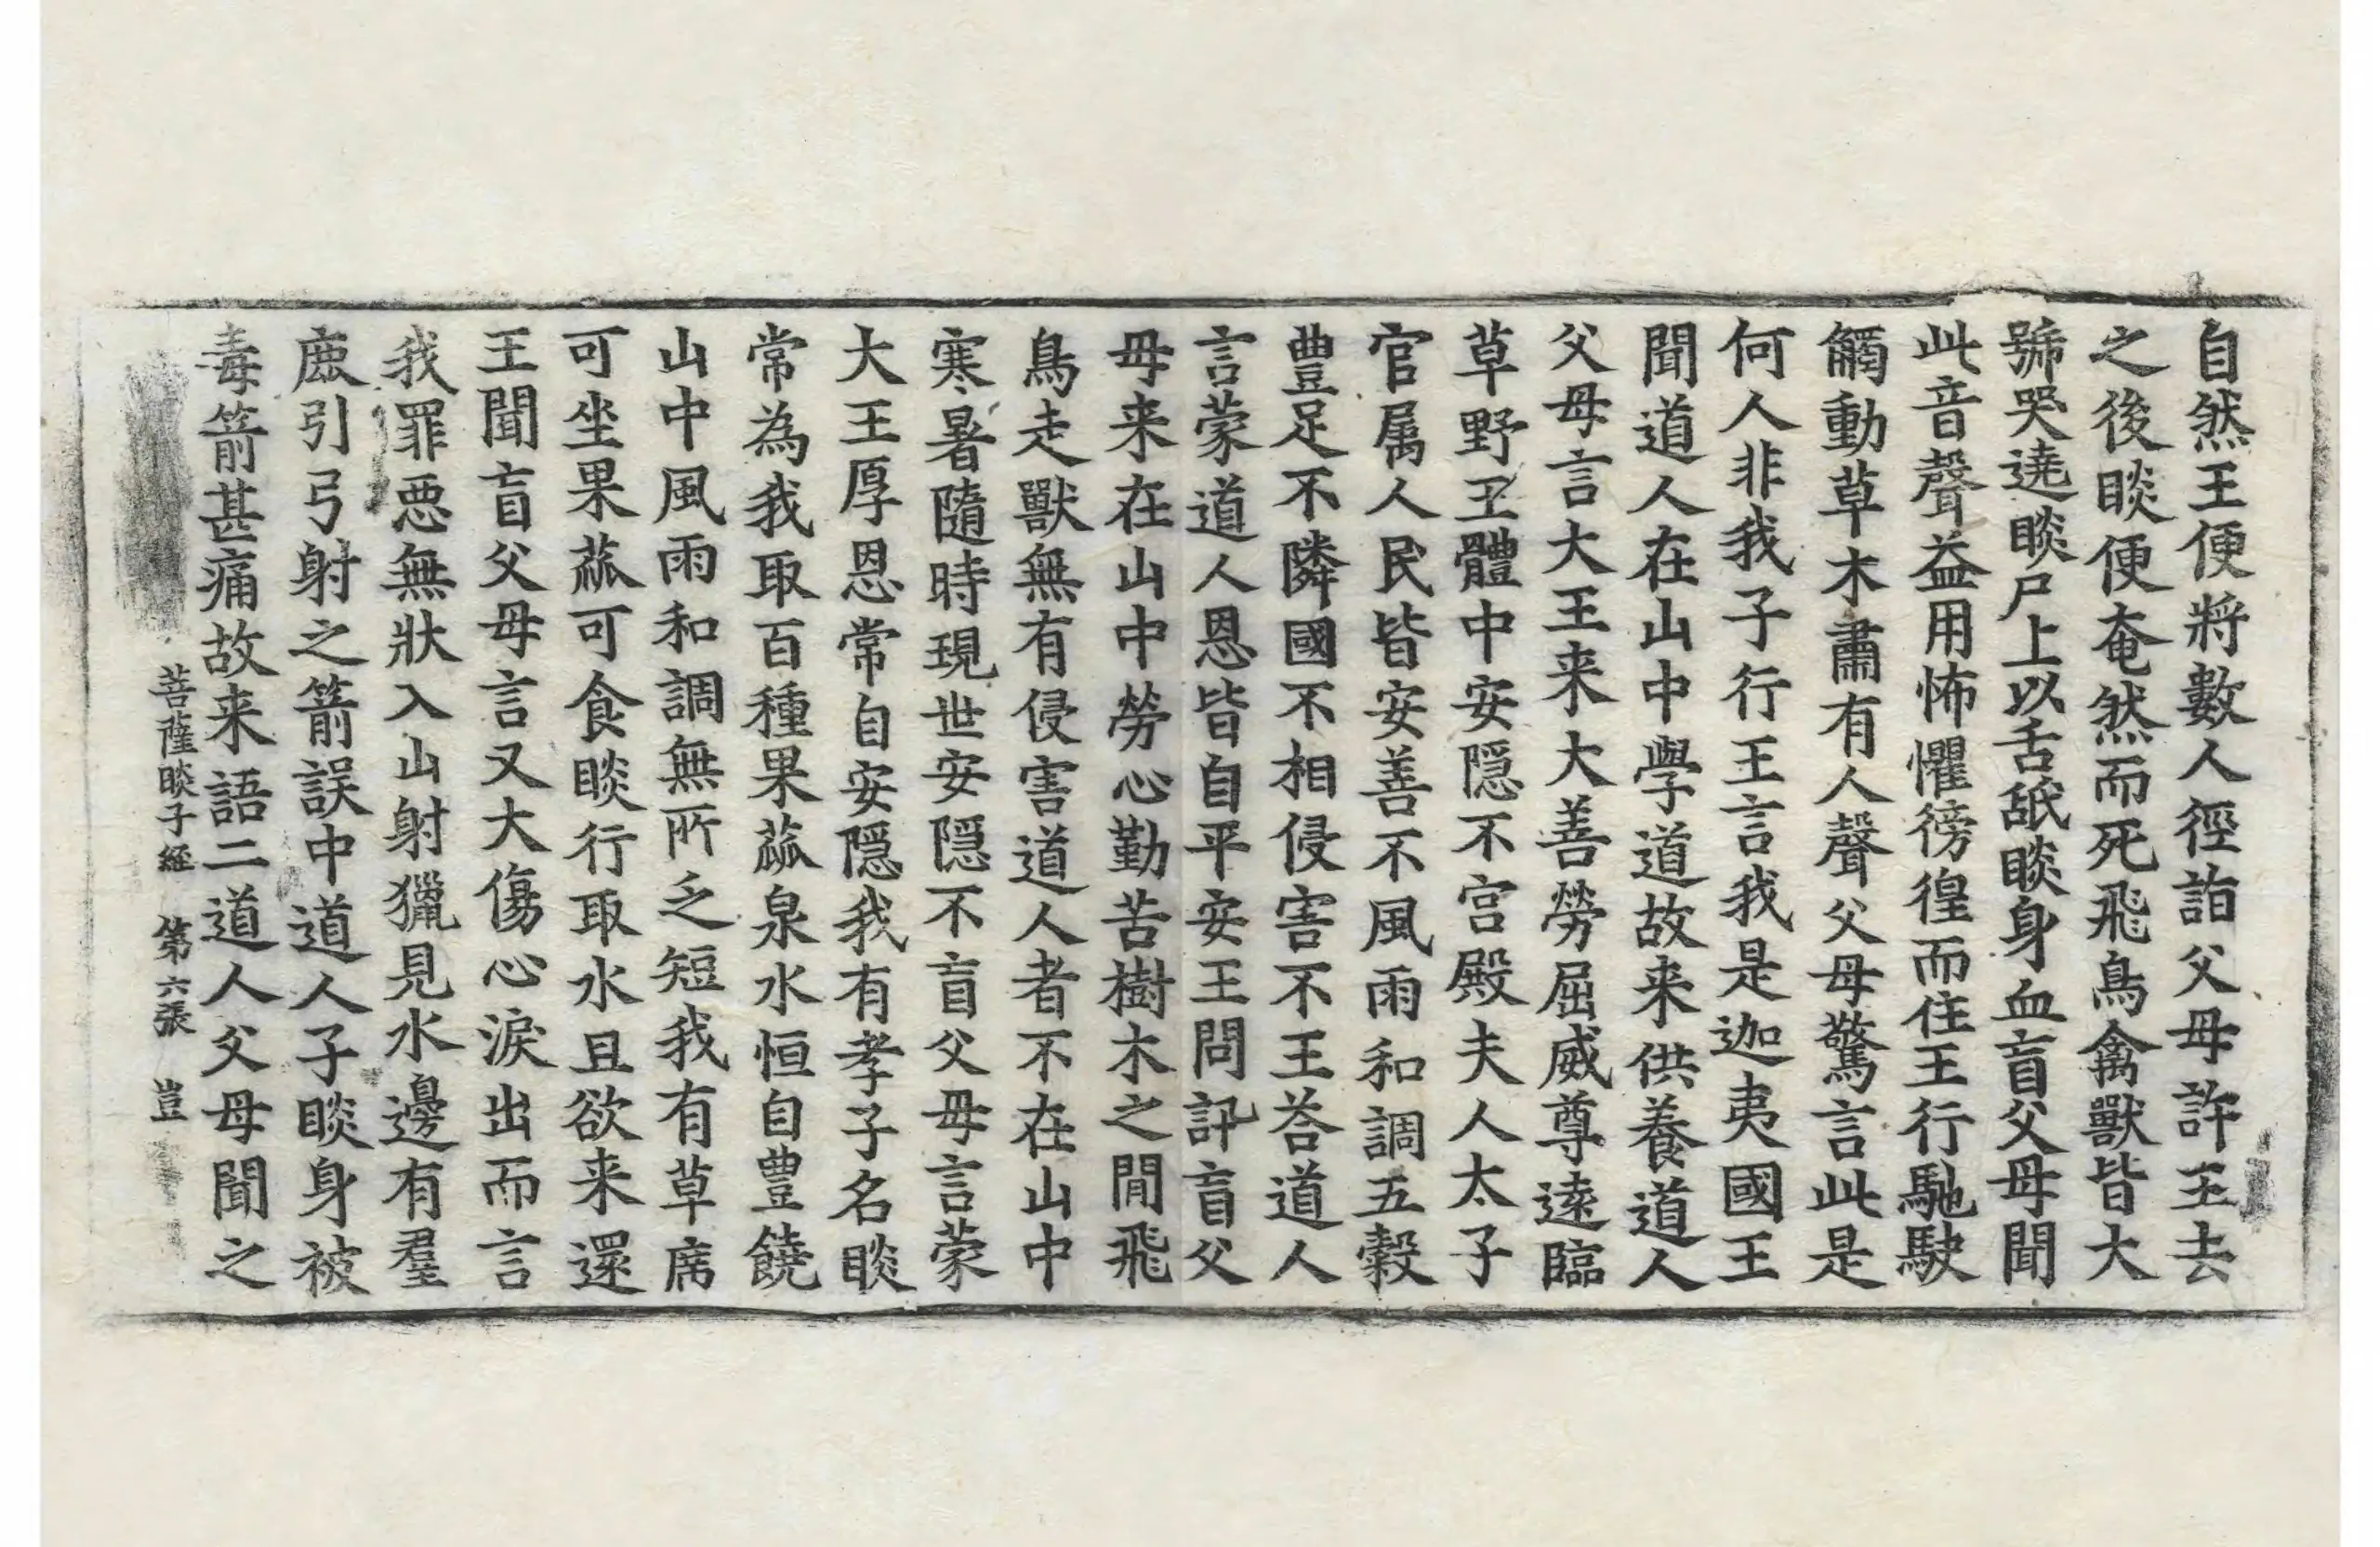 自然王便將數人徑詣父母許王去
之後睒便奄然而死飛鳥禽獸皆大
號哭遶睒尸上以舌舐睒身血盲父母聞
此音聲益用怖懼徬徨而住王行馳駛
觸動草木肅有人聲父母驚言此是
何人非我子行王言我是迦夷國王
聞道人在山中學道故来供養道人
父母言大王来大善勞屈威尊遠臨
草野王體中安隱不宮殿夫人太子
官属人民皆安善不風雨和調五穀
豊足不隣國不相侵害不王荅道人
言蒙道人恩皆自平安王問訊盲父
母来在山中勞心勤苦樹木之閒飛
鳥走獸無有侵害道人者不在山中
寒暑隨時現世安隱不盲父母言蒙
大王厚恩常自安隱我有孝子名睒
常為我取百種果蓏泉水恒自豊饒
山中風雨和調無所乏短我有草席
可坐果蓏可食睒行取水且欲来還
王聞盲父母言又大傷心淚出而言
我罪惡無狀入山射獵見水邊有羣
鹿引弓射之箭誤中道人子睒身被
毒箭甚痛故来語二道人父母聞之
菩薩睒子経 第六張 豈